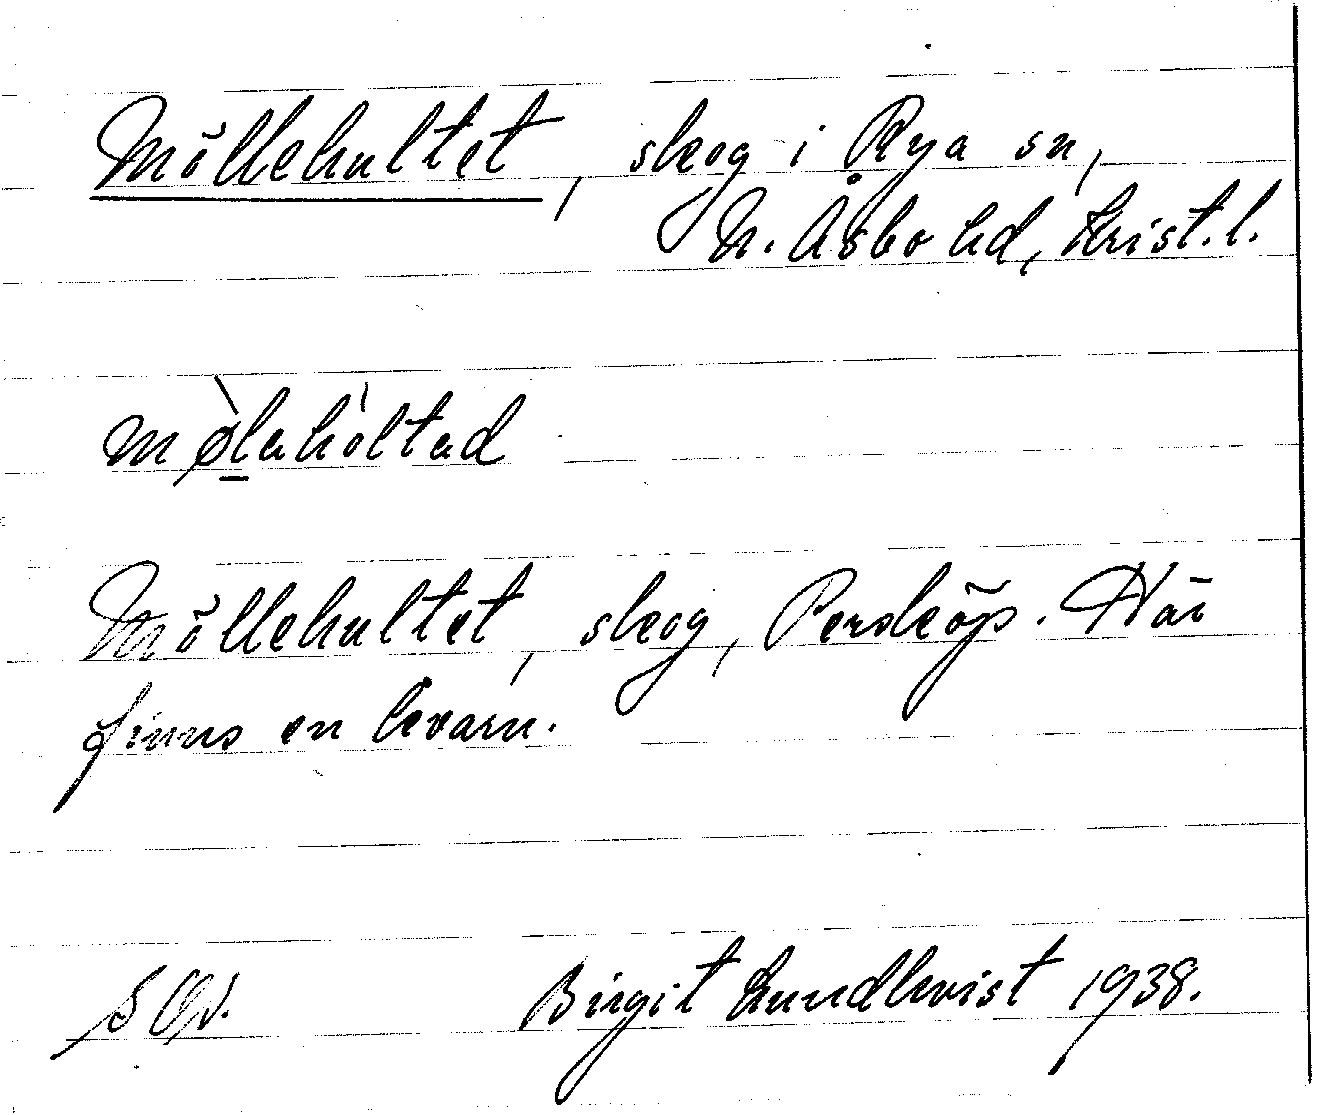 Möllehultet, skog i Rya sn,
N. Åsbo hd, Krist. l.
mø̀lahòltad
Möllehultet, skog, Persköp. Här
finns en kvarn.
Birgit Lundkvist 1938.